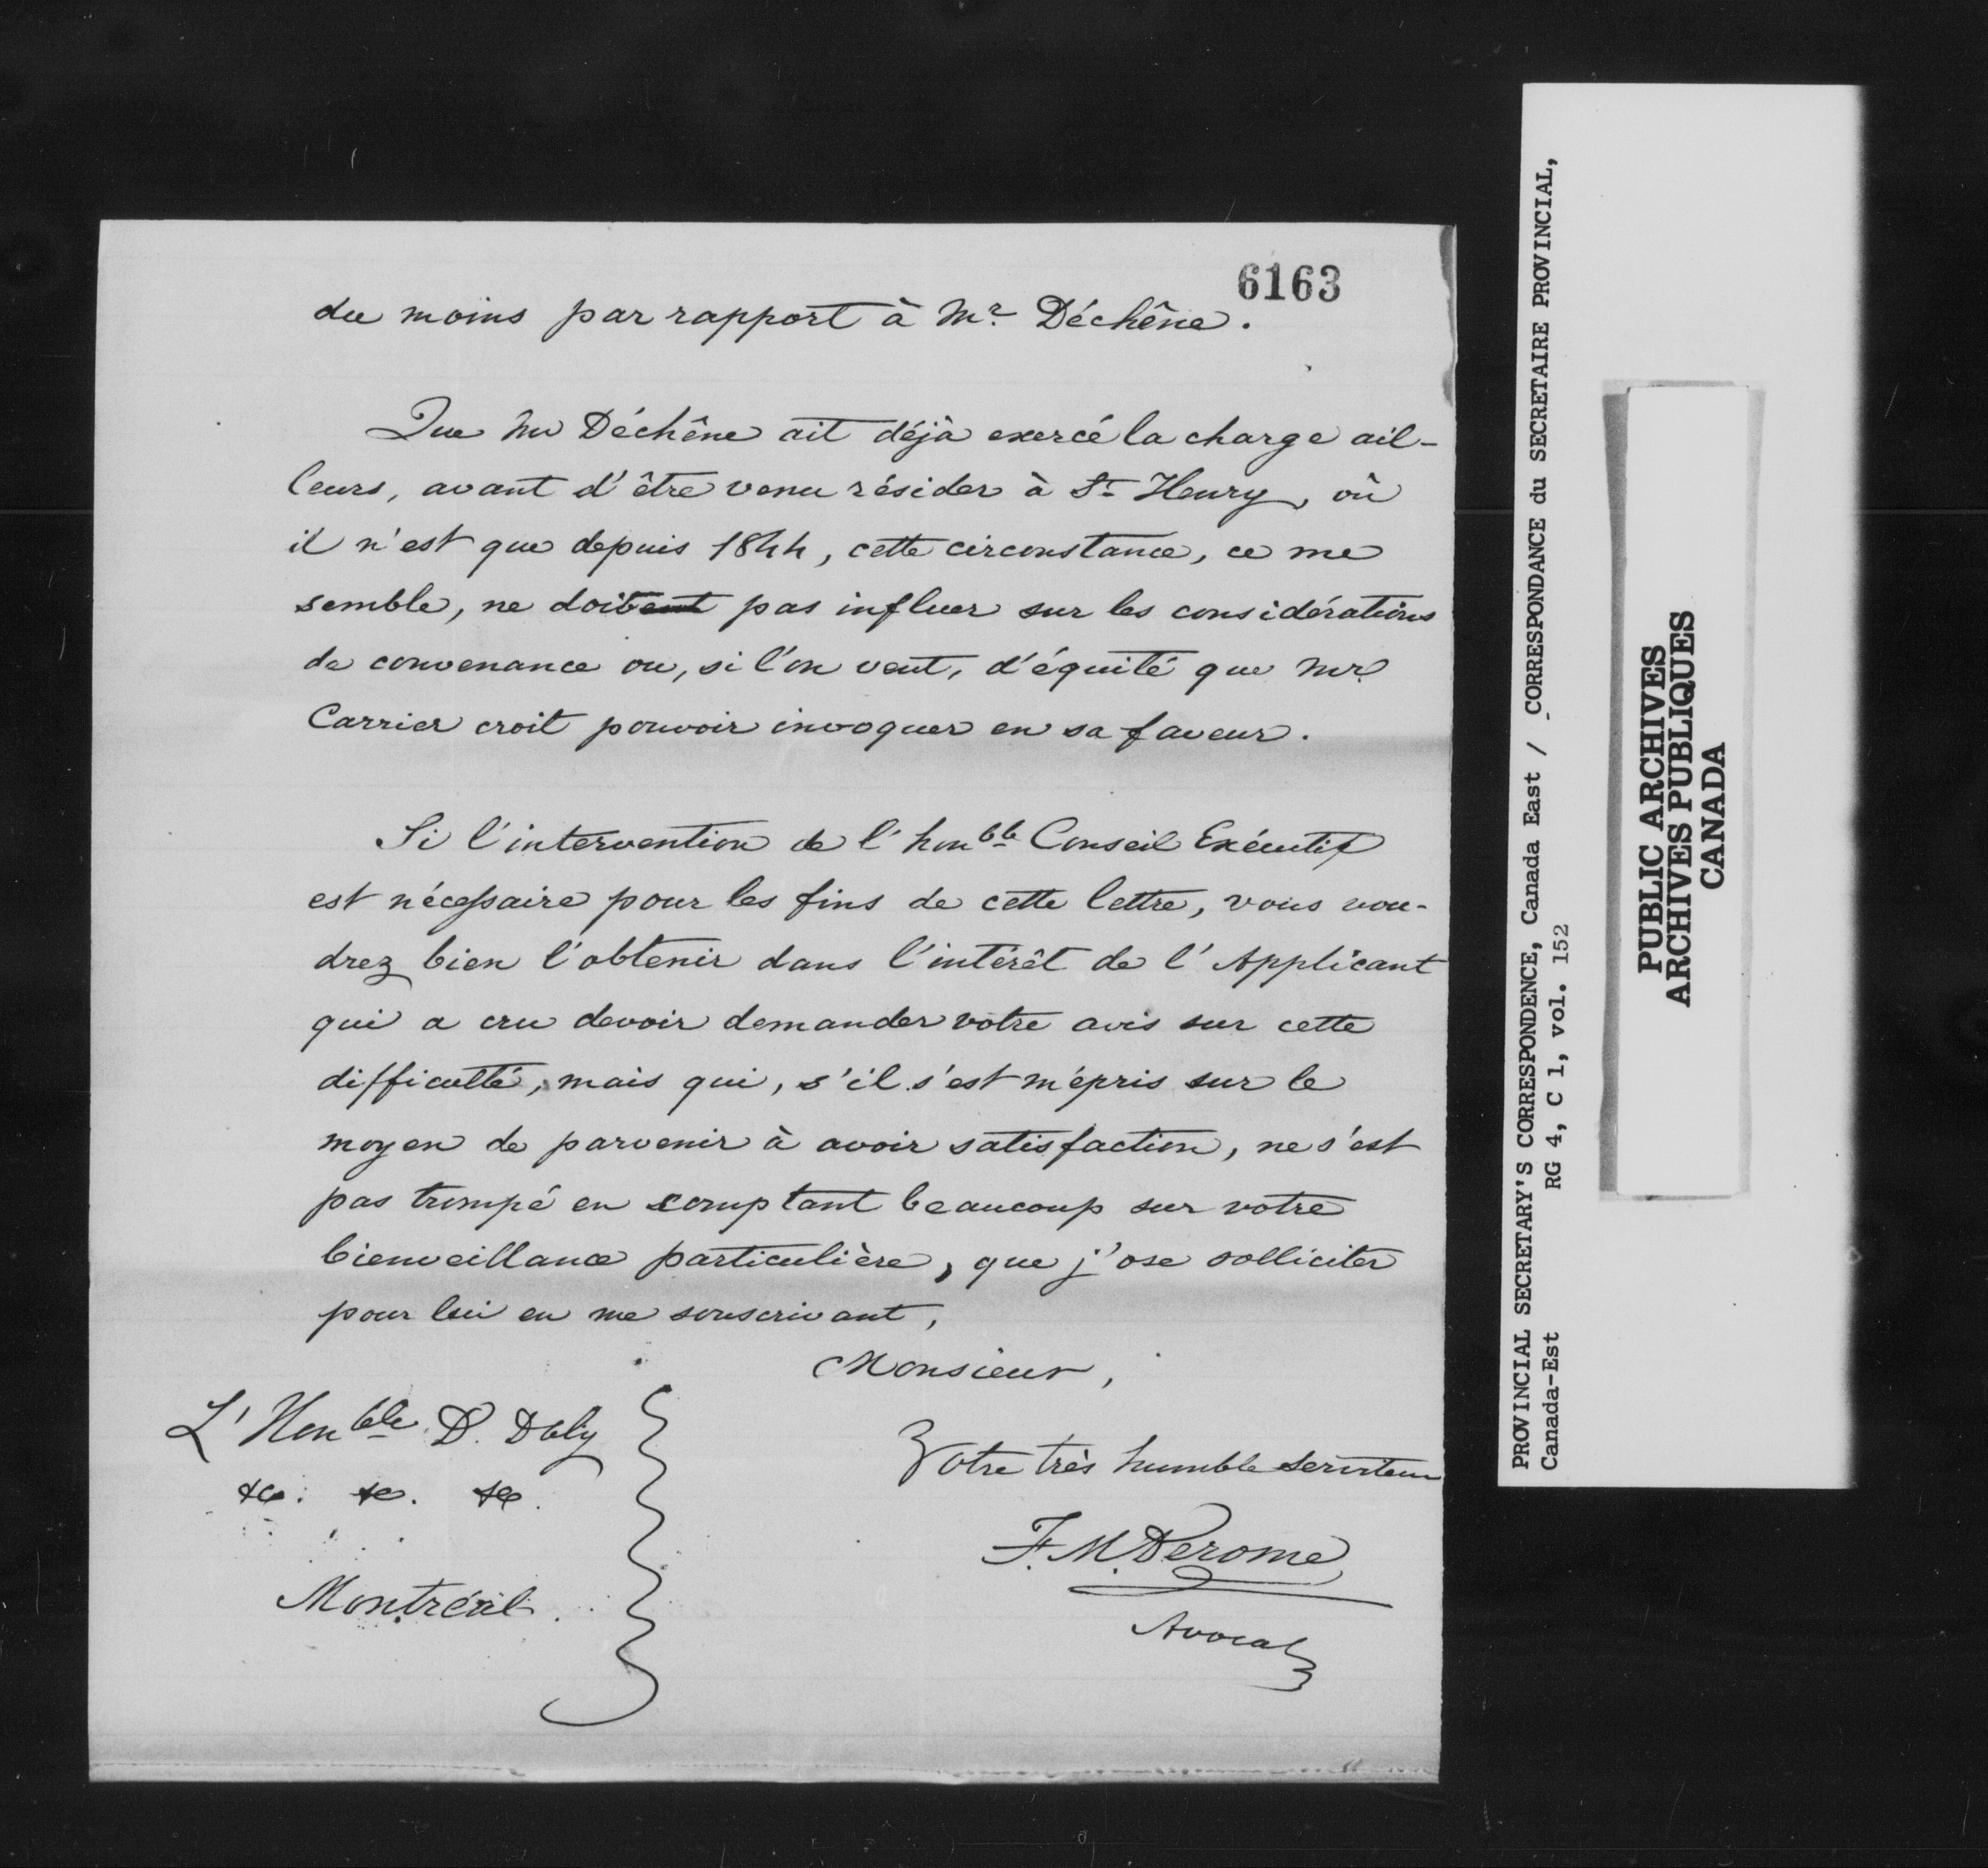 6163
du moins par rapport à Mr. Déchêne.
Que Mr Déchêne ait déjà exercé la charge ail-
leurs, avant d'être venu résider à St. Henry, où
il n'est que depuis 1844, cette circonstance, ce me
semble, ne doivent pas influer sur les considérations
de convenance ou, si l'on veut, d'équité que Mr.
Carrier croit pouvoir invoquer en sa faveur.
Si l'intervention de l'honble Conseil Exécutif
est nécessaire pour les fins de cette lettre, vous vou-
drez bien l'obtenir dans l'intérêt de l'Applicant
qui a cru devoir demander votre avis sur cette
difficulté, mais qui, s'il s'est mépris sur le
moyen de parvenir à avoir satisfaction, ne s'est
pas trompé en comptant beaucoup sur votre
bienveillance particulière, que j'ose solliciter
pour lui en me souscrivant,
Monsieur,
Votre très humble serviteur
F. M. Derome
Avocat
L'Honble D. Daly
&c. &c. &c.
Montréal.
PROVINCIAL SECRETARY'S CORRESPONDENCE, Canada East / CORRESPONDANCE du SECRETAIRE PROVINCIAL,
Canada-Est RG 4, C 1, vol. 152
PUBLIC ARCHIVES
ARCHIVES PUBLIQUES
CANADA